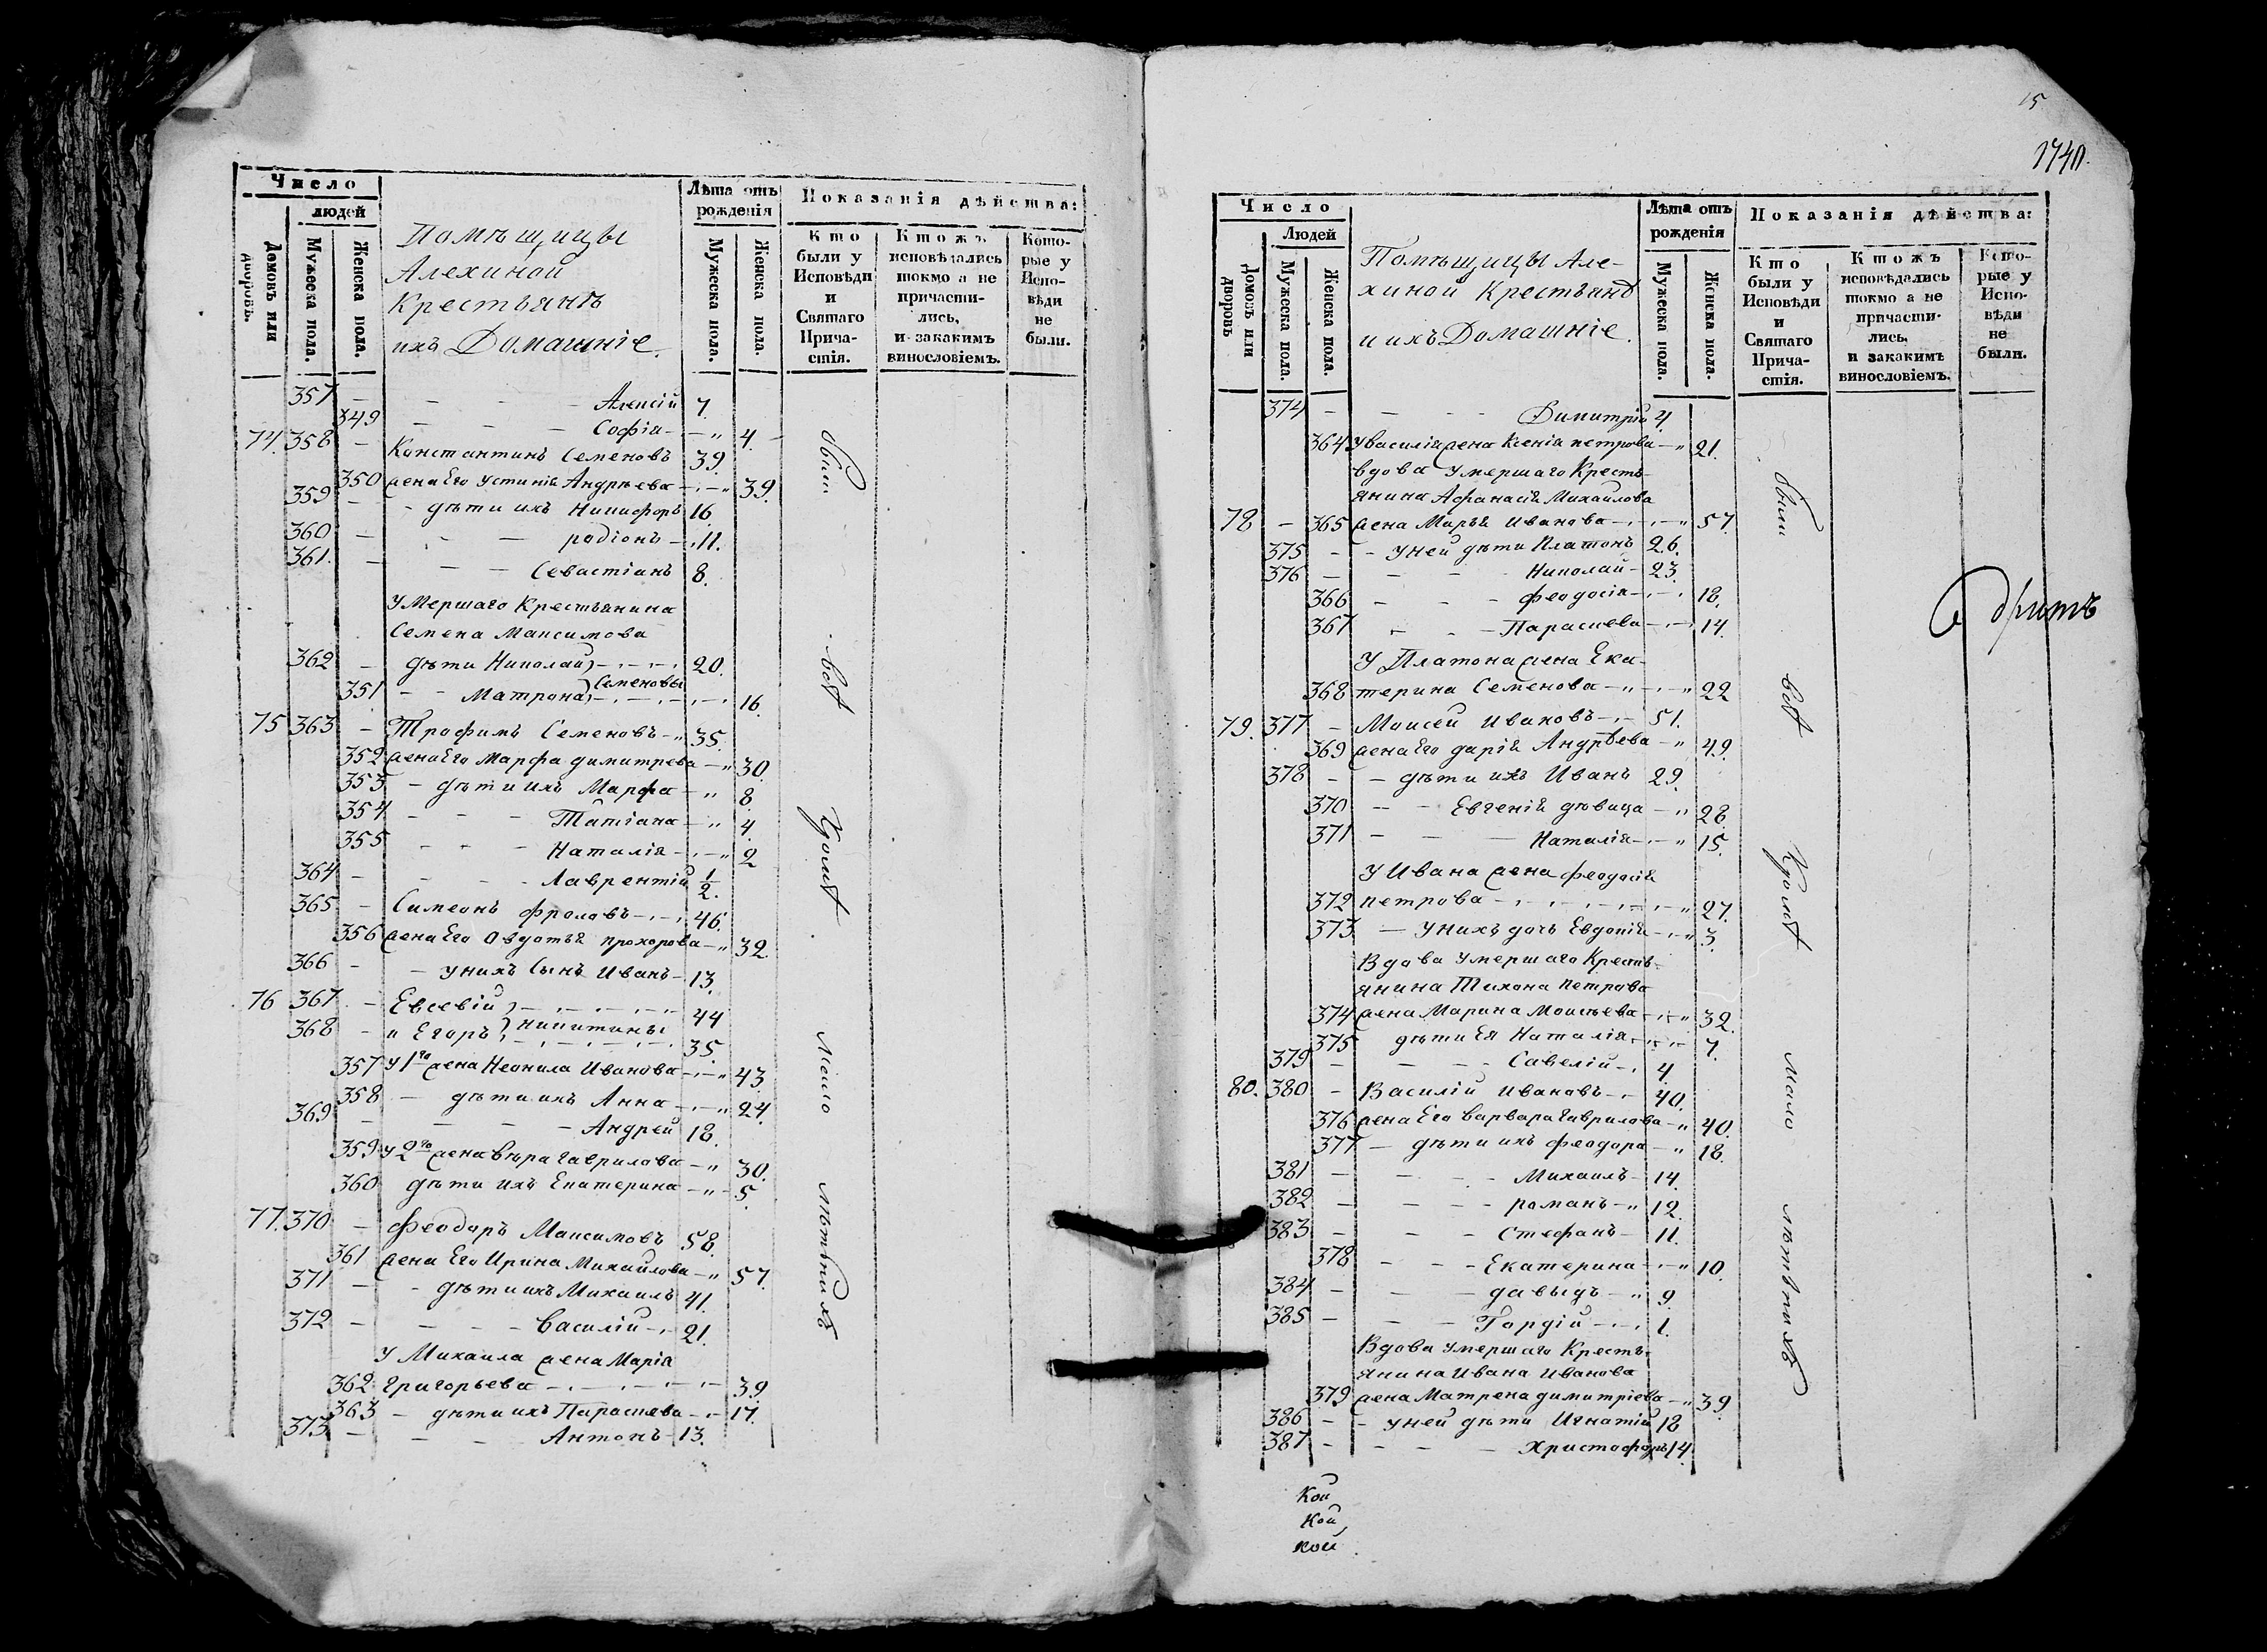 Число
людей
Домовъ или дворовъ.
Мужеска пола.
Женска пола.
Помѣщицы
Алехиной
Крестьянъ
ихъ Домашніе.
Лѣта отъ рожденія
Мужеска пола.
Женска пола.
Показанія дѣйства:
Кто были у Исповѣди и Святаго Прича-стія.
Ктожъ исповѣдались токмо а не причасти-лись, и закакимъ винословіемъ.
Кото-рые у Испо-вѣди не были.
357 - - - - Алексій 7.
349 - - - Софія - - „ 4. -
74. 358 - Константинъ Семеновъ 39.
350 жена Его Устинія Андрѣева - - „ 39.
359 - - дѣти ихъ Никифоръ 16
360 - - - родіонъ - 11.
361. - - - Севастіанъ 8.
Умершаго Крестьянина
Семена Максимова
362 - дѣти Николай) - - - 20.
Семеновы
351 - - Матрона) - - - 16.
75 363 - Трофимъ Семеновъ - „ 35.
352 жена Его Марфа димитрева - „ 30.
353 - дѣти ихъ Марфа - „ 8.
354 - - - Татіана - „ 4.
355 - - - Наталія - - „ 2
364 - - - - Лаврентій 1/2.
365 - Симеонъ фроловъ - - 46.
356 жена Его Овдотья прохорова - „ 32.
366 - - унихъ Сынъ Иванъ - 13.
76 367 - Евсевій) - - - - 44
Никитины
368 - и Егоръ) - - - - 35.
357 у 1го жена Неонила Иванова - - „ 43.
358 - дѣти ихъ Анна - - „ 24.
369 - - - - Андрей 18.
359 у 2го жена вѣра гаврилова - „ 30.
360 дѣти ихъ Екатерина - „ - 5.
77. 370 - феодоръ Максимовъ 58.
361 жена Его Ирина Михаилова - „ 57.
371 - - дѣти ихъ Михаилъ 41.
372 - - - - Василій - - 21.
У Михаила жена Марія
362 григорьева - - - - - 39.
363 - дѣти ихъ Параскева - - 17.
373 - - - Антонъ - 13.
были
всѣ
Кромѣ
мало
лѣтнихъ
15
1740.
Число
Людей
Домовъ или дворовъ
Мужеска пола.
Женска пола.
Помѣщицы Але-
хиной Крестьянъ
и ихъ Домашніе.
Лѣта отъ рожденія
Мужеска пола.
Женска пола.
Показанія дѣйства:
Кто были у Исповѣди и Святаго Прича-стія.
Ктожъ исповѣдались токмо а не причасти-лись, и закакимъ винословіемъ.
Кото-рые у Испо-вѣди не были.
374 - - - - Димитрій 4.
364 У василія жена Ксенія петрова - „ 21.
вдова Умершаго Кресть-
янина Афанасія Михаилова
78 - 365 жена Марья Иванова - - - „ 57.
375 - - у ней дѣти Платонъ 26.
376 - - - - Николай - 23.
366 - - - феодосія - - 18.
367 - - - Параскева - - 14.
У Платона жена Ека-
368 терина Семенова - „ - „ 22
79. 377 - Моисей Ивановъ - - 51.
369 жена Его дарія Андрѣева - „ 49.
378 - - дѣти ихъ Иванъ 29.
370 - - Евгенія дѣвица - „ 28.
371 - - - Наталія - - „ 15.
У Ивана жена феодосія
372 петрова - - - - - „ 27.
373. - у нихъ дочь Евдокія - - „ 3.
Вдова Умершаго Кресть-
янина Тихона Петрова
374 жена Марина Моисѣева - - „ 32.
375 дѣти Ея Наталія - - - 7.
379 - - - - Савелій - - 4.
80. 380 - Василій Ивановъ - - 40.
376 жена Его варвара гаврилова - „ 40.
377 - дѣти ихъ феодора - „ 18.
381 - - - - Михаилъ - 14.
382 - - - - романъ - „ 12.
383 - - - - Стефанъ - 11.
378 - - - Екатерина - - „ 10.
384 - - - давыдъ - „ 9.
385 - - - Гордій - - - 1.
Вдова Умершаго Кресть-
янина Ивана Иванова
379 жена Матрена димитріева - „ 39.
386 - - у ней дѣти Игнатій 18
387 - - - - Христофоръ 14.
были
всѣ
Кромѣ
мало
лѣтнихъ
Кой
Кой
Кой